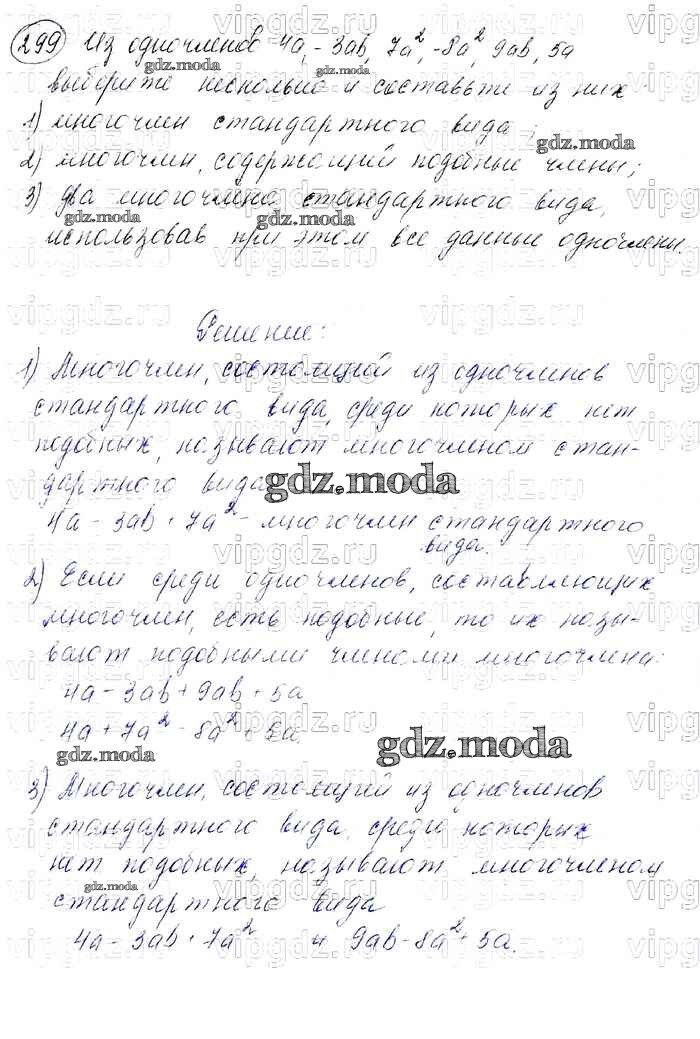 299 Из одночленов 4a, -3ab, 7a², -8a², 9ab, 5a
выберите несколько и составьте из них
1) многочлен стандартного вида;
2) многочлен, содержащий подобные члены;
3) два многочлена стандартного вида,
использовав при этом все данные одночлены.
Решение:
1) Многочлен, состоящий из одночленов
стандартного вида, среди которых нет
подобных, называют многочленом стан-
дартного вида.
4a - 3ab + 7a² - многочлен стандартного
вида.
2) Если среди одночленов, составляющих
многочлен, есть подобные, то их назы-
вают подобными членами многочлена:
4a - 3ab + 9ab + 5a
4a + 7a² - 8a² + 5a.
3) Многочлен, состоящий из одночленов
стандартного вида, среди которых
нет подобных, называют многочленом
стандартного вида
4a - 3ab + 7a² и 9ab - 8a² + 5a.
vipgdz.ru
gdz.moda